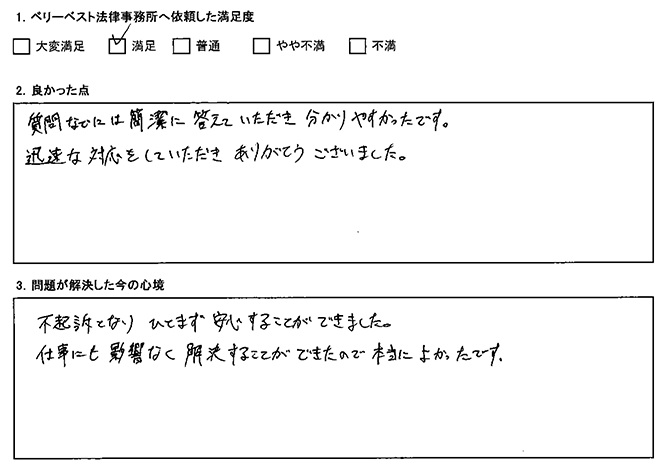 1. ベリーベスト法律事務所へ依頼した満足度
□ 大変満足 ☑ 満足 □ 普通 □ やや不満 □ 不満
2. 良かった点
質問などには簡潔に答えていただき分かりやすかったです。
迅速な対応をしていただきありがとうございました。
3. 問題が解決した今の心境
不起訴となりひとまず安心することができました。
仕事にも影響なく解決することができたので本当によかったです。